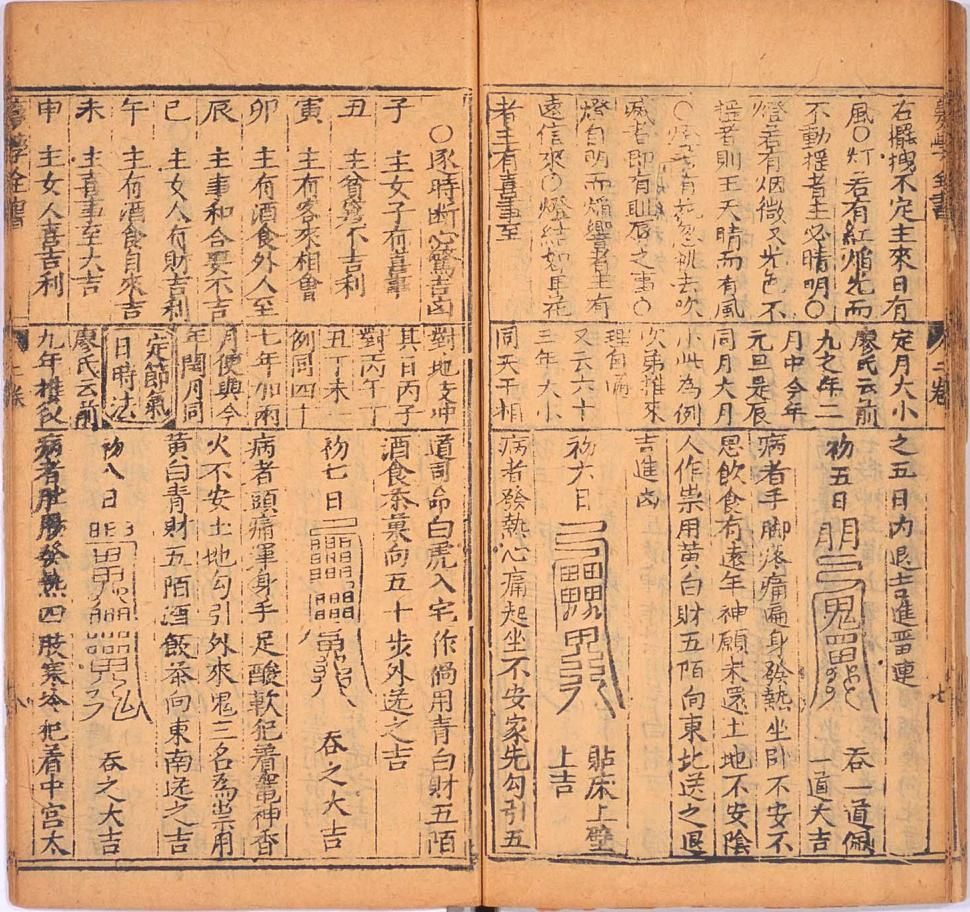 右擺拽不定主來日有
風〇灯若有紅焰先而
不動搖者主必晴明〇
燈若有烟微又光色不
搖者則主天晴而有風
滅者即有耻辱之事〇
燈自明而焰響者主有
遠信來〇燈結如車花
者主有喜事至
定月大小
廖氏云前
九之年二
月中今年
元旦是辰
同月大月
小此為例
次第推來
理自
又云六十
三年大小
同天干相
之五日内退吉進
初五日
吞一道佩
一道大吉
病者手脚疼痛遍身發熱坐卧不安不
思飲食有遠年神願未還土地不安陰
人作祟用黃白財五陌向東北送之退
吉進凶
初六日
貼床上壁
上吉
病者發熱心痛起坐不安家先勾引五
〇逐時断心驚吉凶
子 主女子有喜事
丑 主貧窮不吉利
寅 主有客來相會
卯 主有酒食外人至
辰 主事和合要不吉
巳 主女人有財吉利
午 主有酒食自來吉
未 主喜事至大吉
申 主女人喜吉利
對地支冲
其日丙子
對丙午丁
丑丁未一
例同四十
七年加兩
月便與今
年閏月同
定節氣
日時法
廖氏云前
九年推
道司命白虎入宅作禍用青白財五陌
酒食茶菓向五十步外送之吉
初七日
吞之大吉
病者頭痛渾身手足酸軟犯着竈神香
火不安土地勾引外來鬼三名為祟用
黃白青財五陌酒飯茶向東南送之吉
初八日
吞之大吉
病者肚膓發熱四肢寒冷犯着中宮太